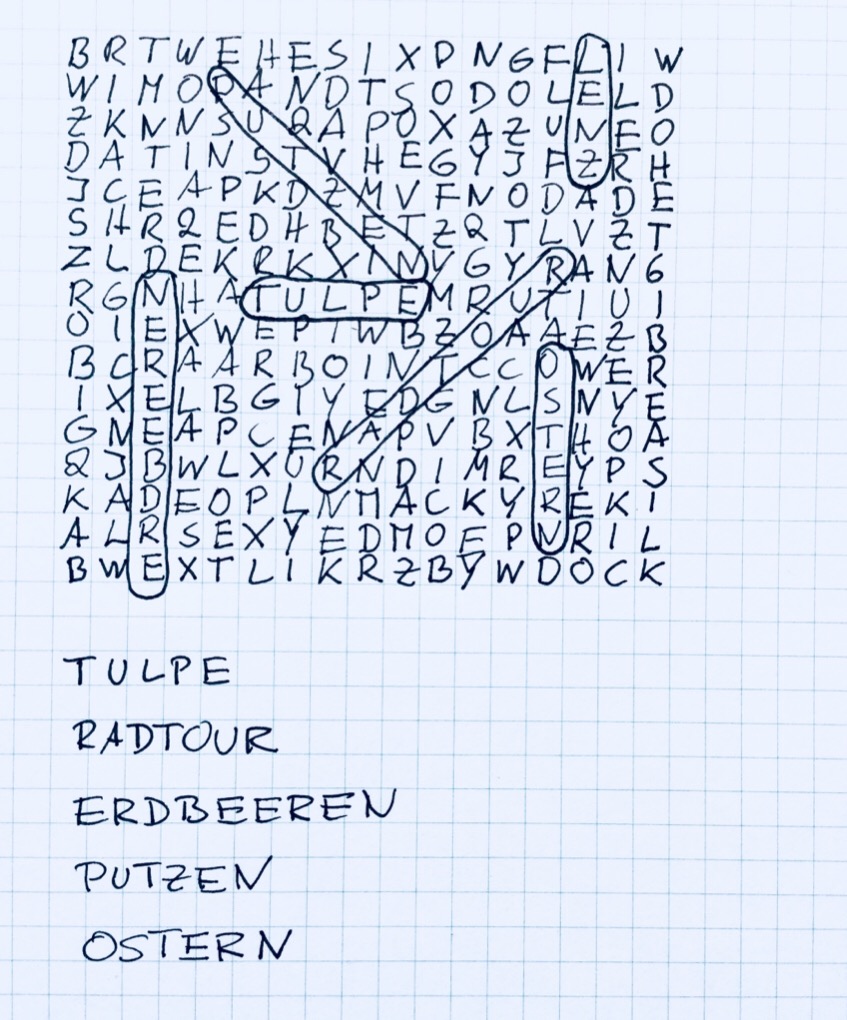 B R T W E H E S I X D N G F L I W
W I M O P A N D T S O D O L E L D
Z K N N S U Q A P O X A Z U N E O
D A T I N S T V H E G Y J F Z R H
J C E A P K D Z M V F N O D A D E
S H R Q E D H B E T Z Q T L V Z T
Z L D E K R K X I N V G Y R A N G
R G N H A T U L P E M R U T I U I
O I E X W E P T W B Z O A A E Z B
B C R A A R B O I N T C C O W E R
I X E L B G I Y E D G N L S N Y E
G N E A P C E N A P V B X T H O A
Q J B W L X U R N D I M R E Y P S
K A D E O P L N M A C K Y R E K I
A L R S E X Y E D M O E P N R I L
B W E X T L I K R Z B Y W D O C K
TULPE
RADTOUR
ERDBEEREN
PUTZEN
OSTERN